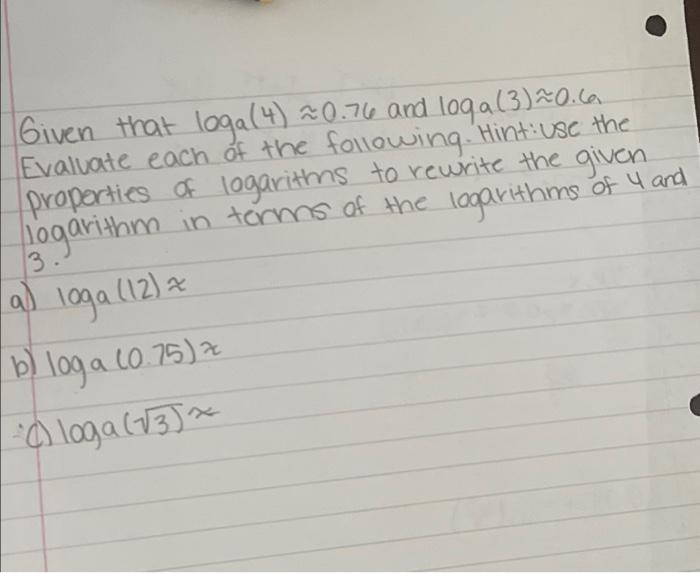 Given that loga(4) ≈0.76 and loga(3)≈0.6.
Evaluate each of the following. Hint: use the
properties of logarithms to rewrite the given
logarithm in terms of the logarithms of 4 and
3.
a) loga (12) ≈
b) loga (0.75) ≈
c) loga (√3) ≈